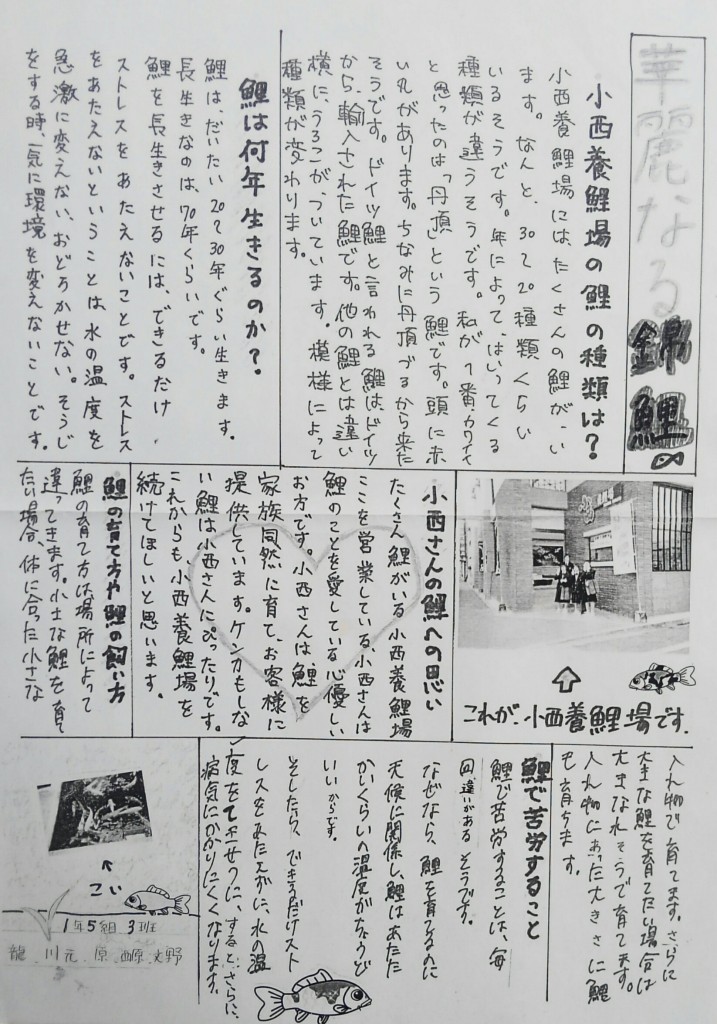 華麗なる錦鯉
小西養鯉場の鯉の種類は?
小西養鯉場には、たくさんの鯉が、い
ます。なんと、30〜20種類くらい
いるそうです。年によって、はいってくる
種類が違うそうです。私が1番、カワイイ
と思ったのは「丹頂」という鯉です。頭に赤
い丸があります。ちなみに丹頂づるから来た
そうです。ドイツ鯉と言われる鯉は、ドイツ
から、輸入された鯉です。他の鯉とは違い
横に、うろこがついています。模様によって
種類が変わります。
鯉は何年生きるのか?
鯉は、だいたい20〜30年ぐらい生きます。
長生きなのは、70年くらいです。
鯉を長生きさせるには、できるだけ、
ストレスをあたえないことです。ストレス
をあたえないということは、水の温度を
急激に変えない、おどろかせない。そうじ
をする時、一気に環境を変えないことです。
これが、小西養鯉場です。
小西さんの鯉への思い
たくさん鯉がいる小西養鯉場
ここを営業している、小西さんは
鯉のことを愛している心優しい
お方です。小西さんは鯉を
家族同然に育て、お客様に
提供しています。ケンカもしな
い鯉は小西さんにぴったりです。
これからも、小西養鯉場を
続けてほしいと思います。
鯉の育て方や鯉の飼い方
鯉の育て方は場所によって
違ってきます。小さな鯉を育て
たい場合、体に合った小さな
入れ物で育てます。さらに
大きな鯉を育てたい場合は
大きな水そうで育てます。
入れ物にあった大きさに鯉
も育ちます。
鯉で苦労すること
鯉で苦労することは、毎
回、違いがあるそうです。
なぜなら、鯉を育てるのに
天候に関係し、鯉はあたた
かいくらいの温度がちょうど
いいからです。
そしたら、できるだけスト
レスをあたえずに、水の温
度を
すると、さらに、
病気にかかりにくくなります。
こい
1年5組 3班
龍 川元 原 西原 文野